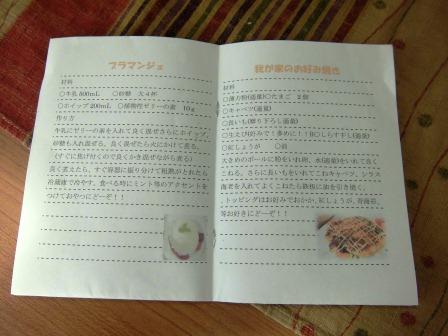 ブラマンジェ
材料
○牛乳 500mL　○砂糖　大4杯
○ホイップ 200mL　○植物性ゼリーの素　10g
作り方
牛乳にゼリーの素を入れて良く混ぜさらにホイップ、
砂糖も入れ混ぜる。良く混ぜたら火にかけて煮る。
(すぐに焦げ付くので良くかき混ぜながら煮る)
良く煮えたら、すぐ容器に振り分けて粗熱がとれたら
冷蔵庫で冷やす。食べる時にミント等のアクセントを
つけておやつにどーぞ！！
我が家のお好み焼き
材料
○薄力粉(適量)○たまご　2個
○キャベツ(適量)
○長いも(摩り下ろし適量)
○生えび好みで(多めに！！)○しらす干し(適量)
○紅しょうが
大きめのボールに粉をいれ卵、水(適量)をいれて良く
こねる。さらに長いもをいれてこねキャベツ、シラス
海老を入れてよくこねたら鉄板に油を引き焼く。
トッピングはお好みでおかか、紅しょうが、青海苔、
等お好きにどーぞ！！